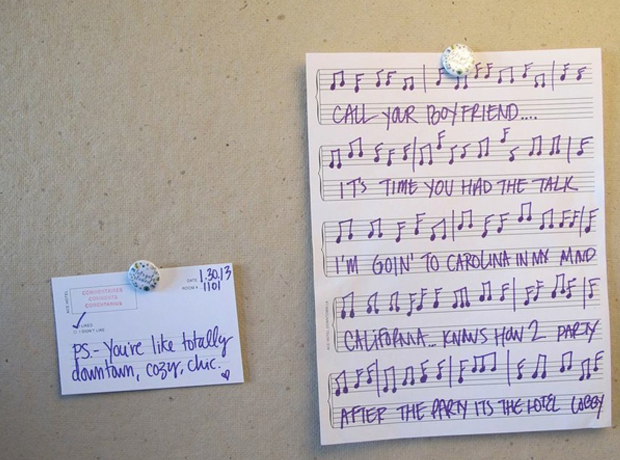 CALL YOUR BOYFRIEND....
IT'S TIME YOU HAD THE TALK
I'M GOIN' TO CAROLINA IN MY MIND
CALIFORNIA.. KNOWS HOW 2 PARTY
AFTER THE PARTY ITS THE HOTEL LOBBY
DATE 1.30.13
ROOM # 1101
COMMENTAIRES
COMMENTS
COMENTARIOS
ACE HOTEL
✓ I LIKE
I DIDN'T LIKE
PS.- You're like totally
downtown, cozy, chic. ♥